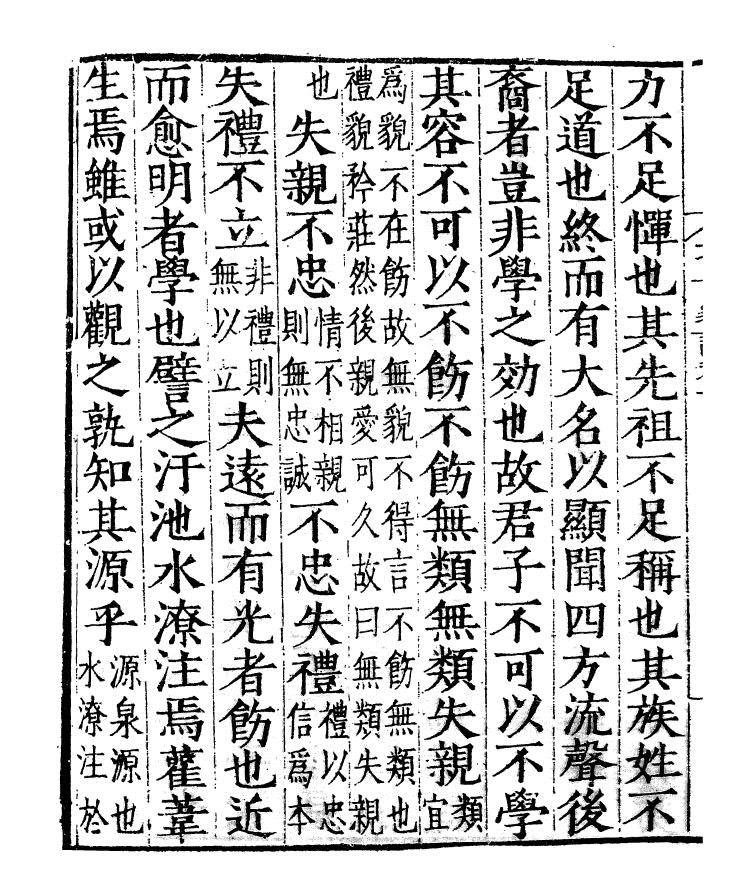 力不足憚也其先祖不足稱也其族姓不
足道也終而有大名以顯聞四方流聲後
裔者豈非學之効也故君子不可以不學
其容不可以不飭不飭無類無類失親類宜
爲貌不在飭故無貌不得言不飭無類也
禮貌矜莊然後親愛可久故曰無類失親
也失親不忠情不相親則無忠誠不忠失禮禮以忠信爲本
失禮不立非禮則無以立夫遠而有光者飭也近
而愈明者學也譬之汙池水潦注焉雚葦
生焉雖或以觀之孰知其源乎源泉源也水潦注於